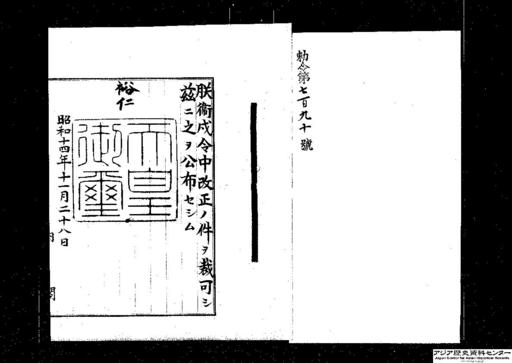 勅令第七百九十號
朕衞戍令中改正ノ件ヲ裁可シ
茲ニ之ヲ公布セシム
裕仁
天皇
御璽
昭和十四年十一月二十八日
閣
アジア歴史資料センター
Japan Center for Asian Historical Records